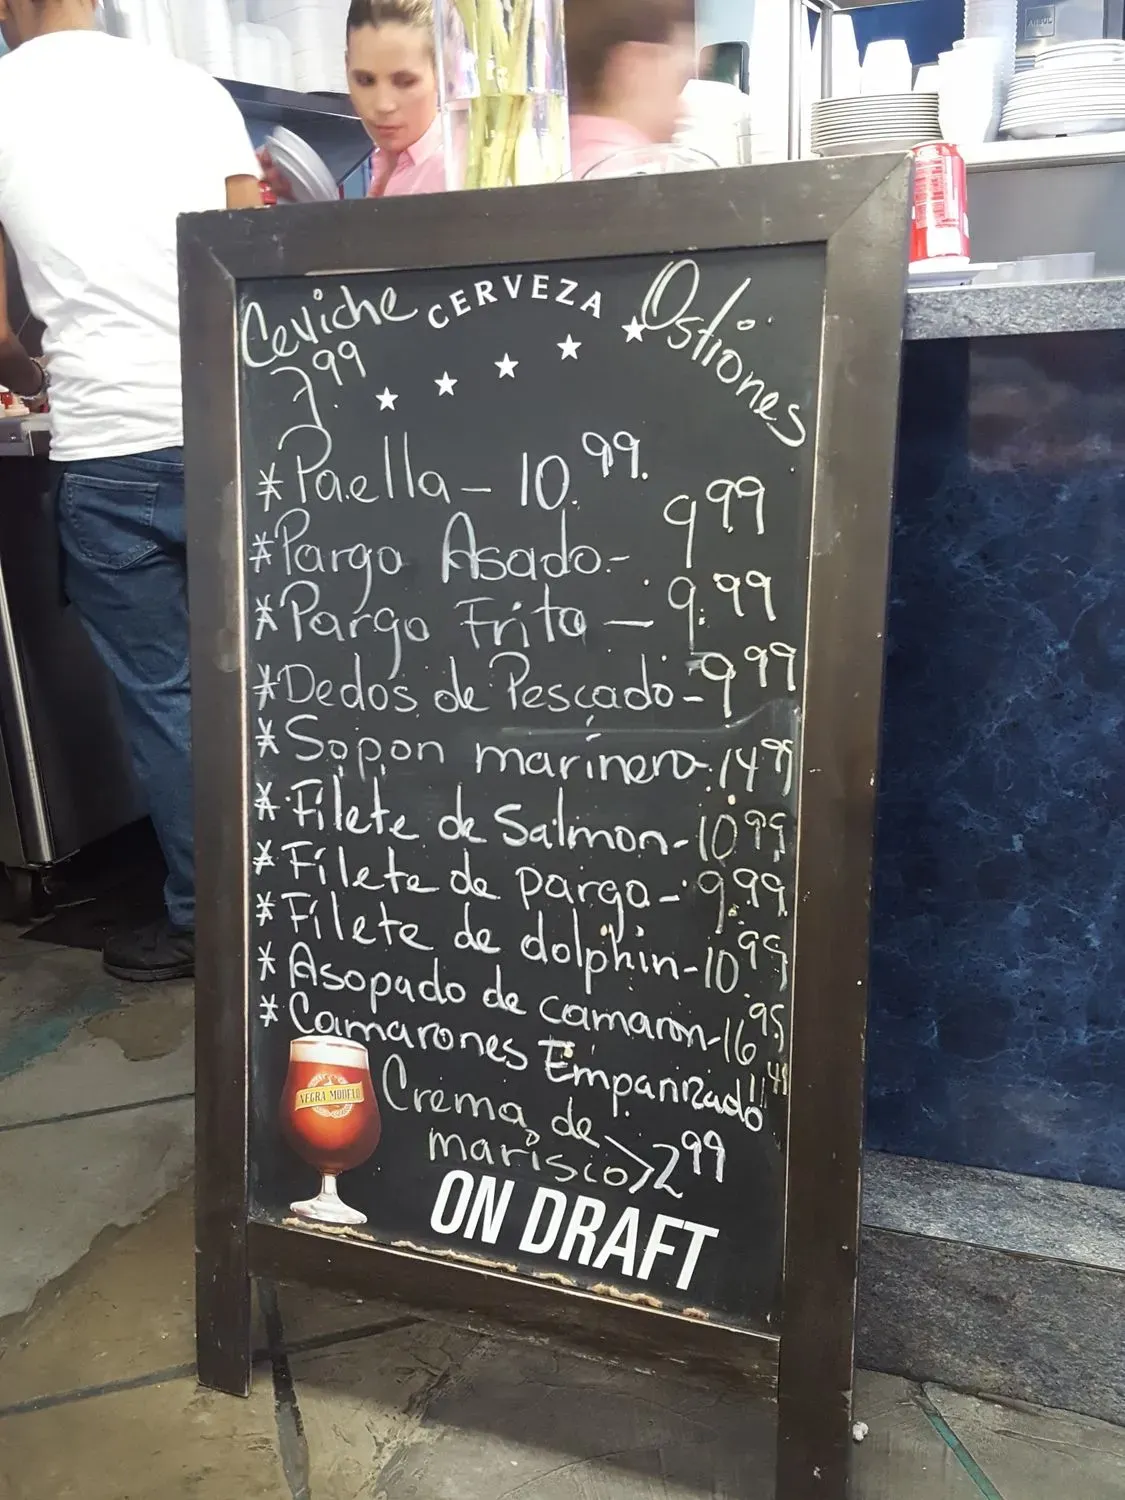 Ceviche
7.99
CERVEZA
Ostiones
*Paella - 10.99.
*Pargo Asado - 9.99
*Pargo Frito - 9.99
*Dedos de Pescado - 9.99
*Sopon marinero - 14.99
*Filete de Salmon - 10.99
*Filete de pargo - 9.99
*Filete de dolphin - 10.99
*Asopado de camaron - 16.95
*Camarones Empanizado 11.49
Crema de
marisco > 2.99
NEGRA MODELO
ON DRAFT